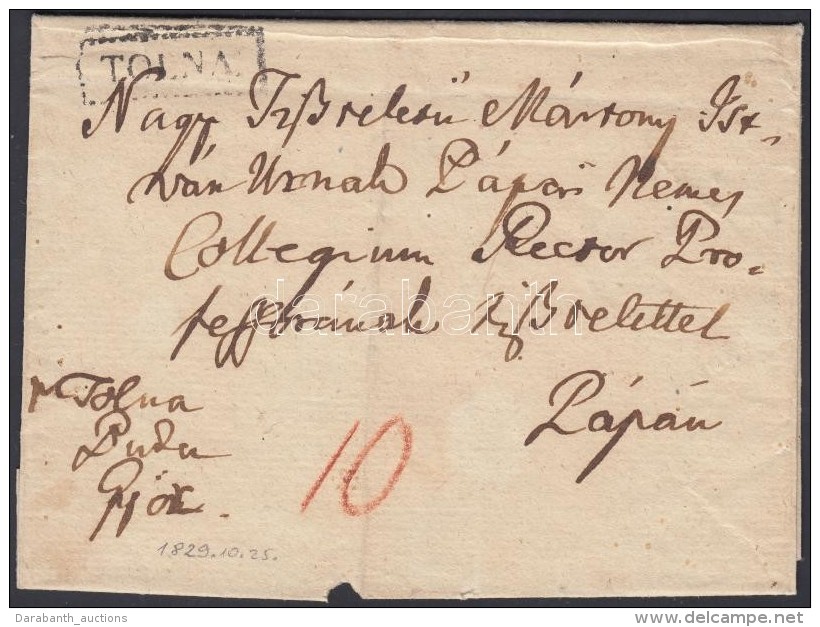 TOLNA
Nagy Tißteletü Mártony Ist-
ván Urnak Pápai Nemes
Collegium Rector Pro-
fessorának tißtelettel
Pápán
p Tolna
Buda
Györ.
10
1829.10.25.
darabanth
Darabanth_auctions
delcampe.net